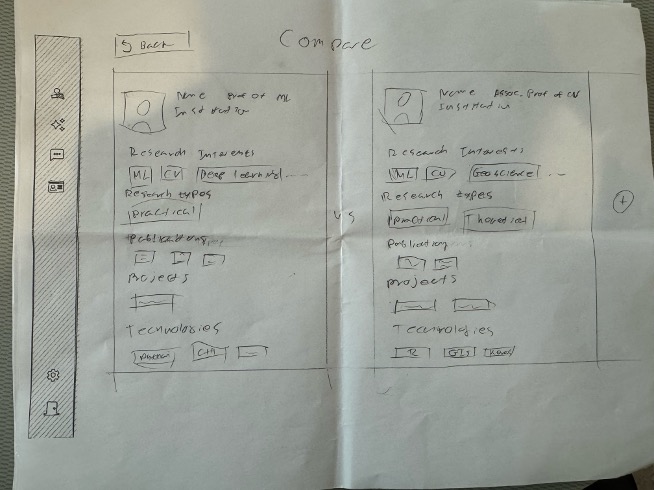 Back
Compare
Name Prof of ML
Institution
Research Interests
ML CV Deep learning ...
Research types
practical
Publications
Projects
Technologies
C++
vs
Name Assoc. Prof of CV
Institution
Research Interests
ML CV Geoscience ...
Research types
practical
Publication
projects
Technologies
R
+